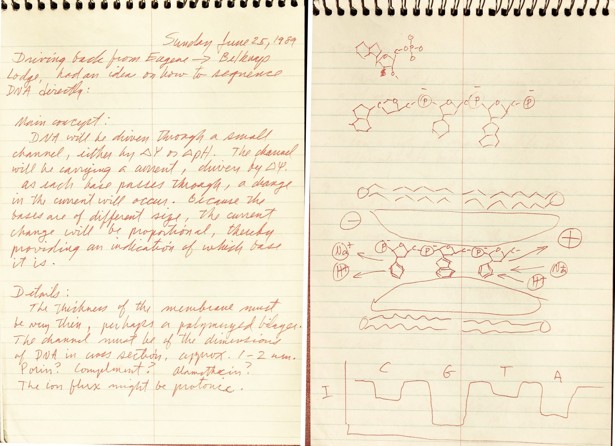 Sunday June 25, 1989
Driving back from Eugene → Belknap
Lodge, had an idea on how to sequence
DNA directly:
Main concept:
DNA will be driven through a small
channel, either by ΔΨ or ΔpH. The channel
will be carrying a current, driven by ΔΨ.
as each base passes through, a change
in the current will occur. Because the
bases are of different size, the current
change will be proportional, thereby
providing an indication of which base
it is.
Details:
The thickness of the membrane must
be very thin, perhaps a polymerized bilayer.
The channel must be of the dimensions
of DNA in cross section, approx. 1-2 nm.
Porin? Complement? Alamethicin?
The ion flux might be protonic.
P
P P P
− +
Na+ P P P
H+ H+
I C G T A